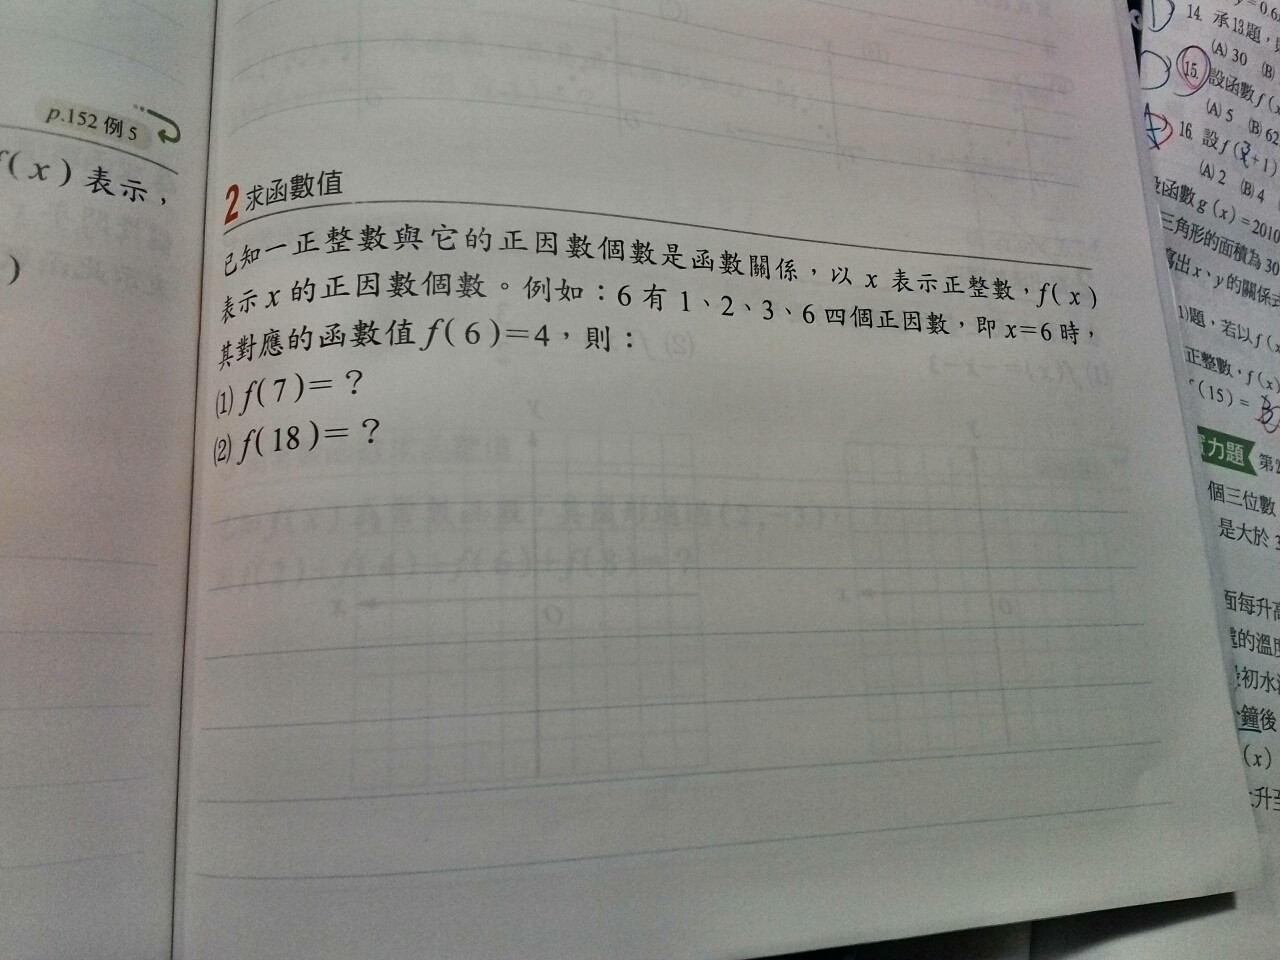 p.152 例5
f(x)表示，
)
2 求函數值
已知一正整數與它的正因數個數是函數關係，以 x 表示正整數，f(x)
表示 x 的正因數個數。例如：6 有 1、2、3、6 四個正因數，即 x=6 時，
其對應的函數值 f(6)=4，則：
(1) f(7)=？
(2) f(18)=？
14. 承13題，
(A) 30 (B)
15. 設函數 f(x
(A) 5 (B) 62
16. 設 f(
+1)
(A) 2 (B) 4
設函數 g(x)=2010
三角形的面積為 30
寫出 x、y 的關係式
1)題，若以 f(x
正整數，f(x)
(15)=
實力題 第2
個三位數
是大於 3
面每升高
處的溫度
最初水
分鐘後
(x)
上升至